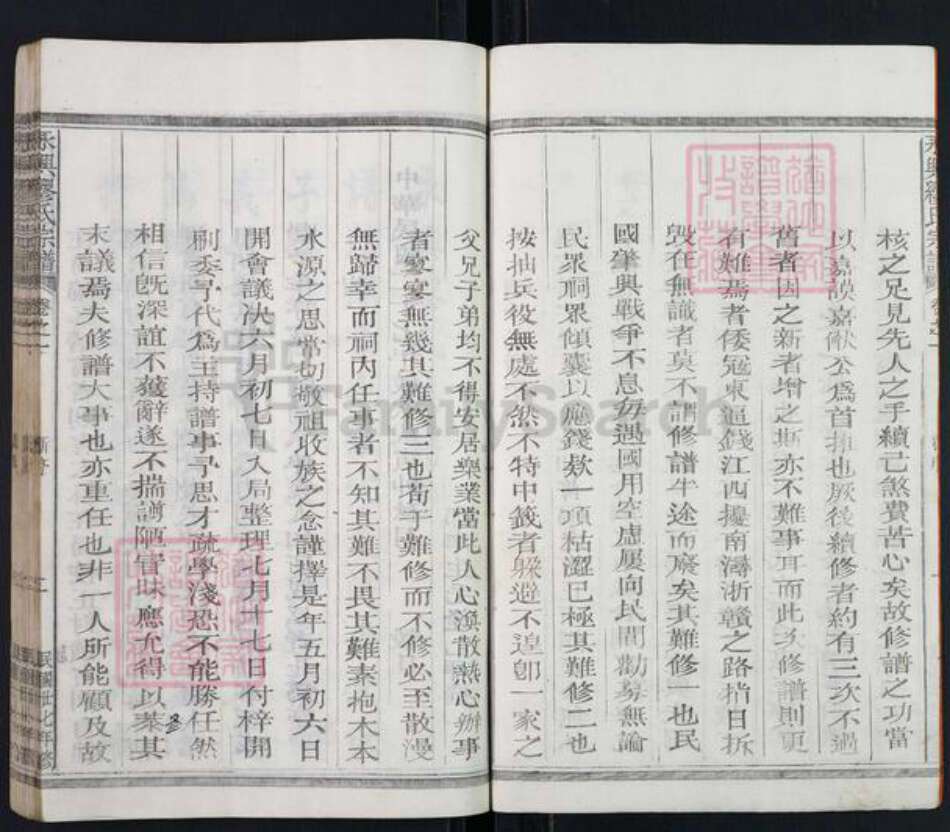 核之兄見先人之手續已煞費苦心矣故修譜之功當
以嘉謨嘉猷公爲首推也厥後續修者約有三次不過
舊者因之新者增之斯亦不難事耳而此次修譜則更
有難焉者倭寇東逼錢江西擾南潯浙贛之路指日拆
毀在無識者莫不謂修譜半途而廢矣其難修一也民
國肇興戰爭不息每遇國用空虛屢向民間勸募無論
民眾祠眾傾囊以應錢款一項枯澀已極其難修二也
按抽兵役無處不然不特中籤者躲避不遑卽一家之
父兄子弟均不得安居樂業當此人心渙散熱心辦事
者寥寥無幾其難修三也苟于難修而不修必至散漫
無歸幸而祠內任事者不知其難不畏其難素抱木本
水源之思常切敬祖收族之念謹擇是年五月初六日
開會議決六月初七日入局整理七月廿七日付梓開
刷委予代爲主持譜事予思才疏學淺恐不能勝任然
相信旣深誼不獲辭遂不揣譾陋冒昧應允得以叅其
末議焉夫修譜大事也亦重任也非一人所能顧及故
永興繆氏宗譜
卷之一
新序
民國廿七年修
FamilySearch